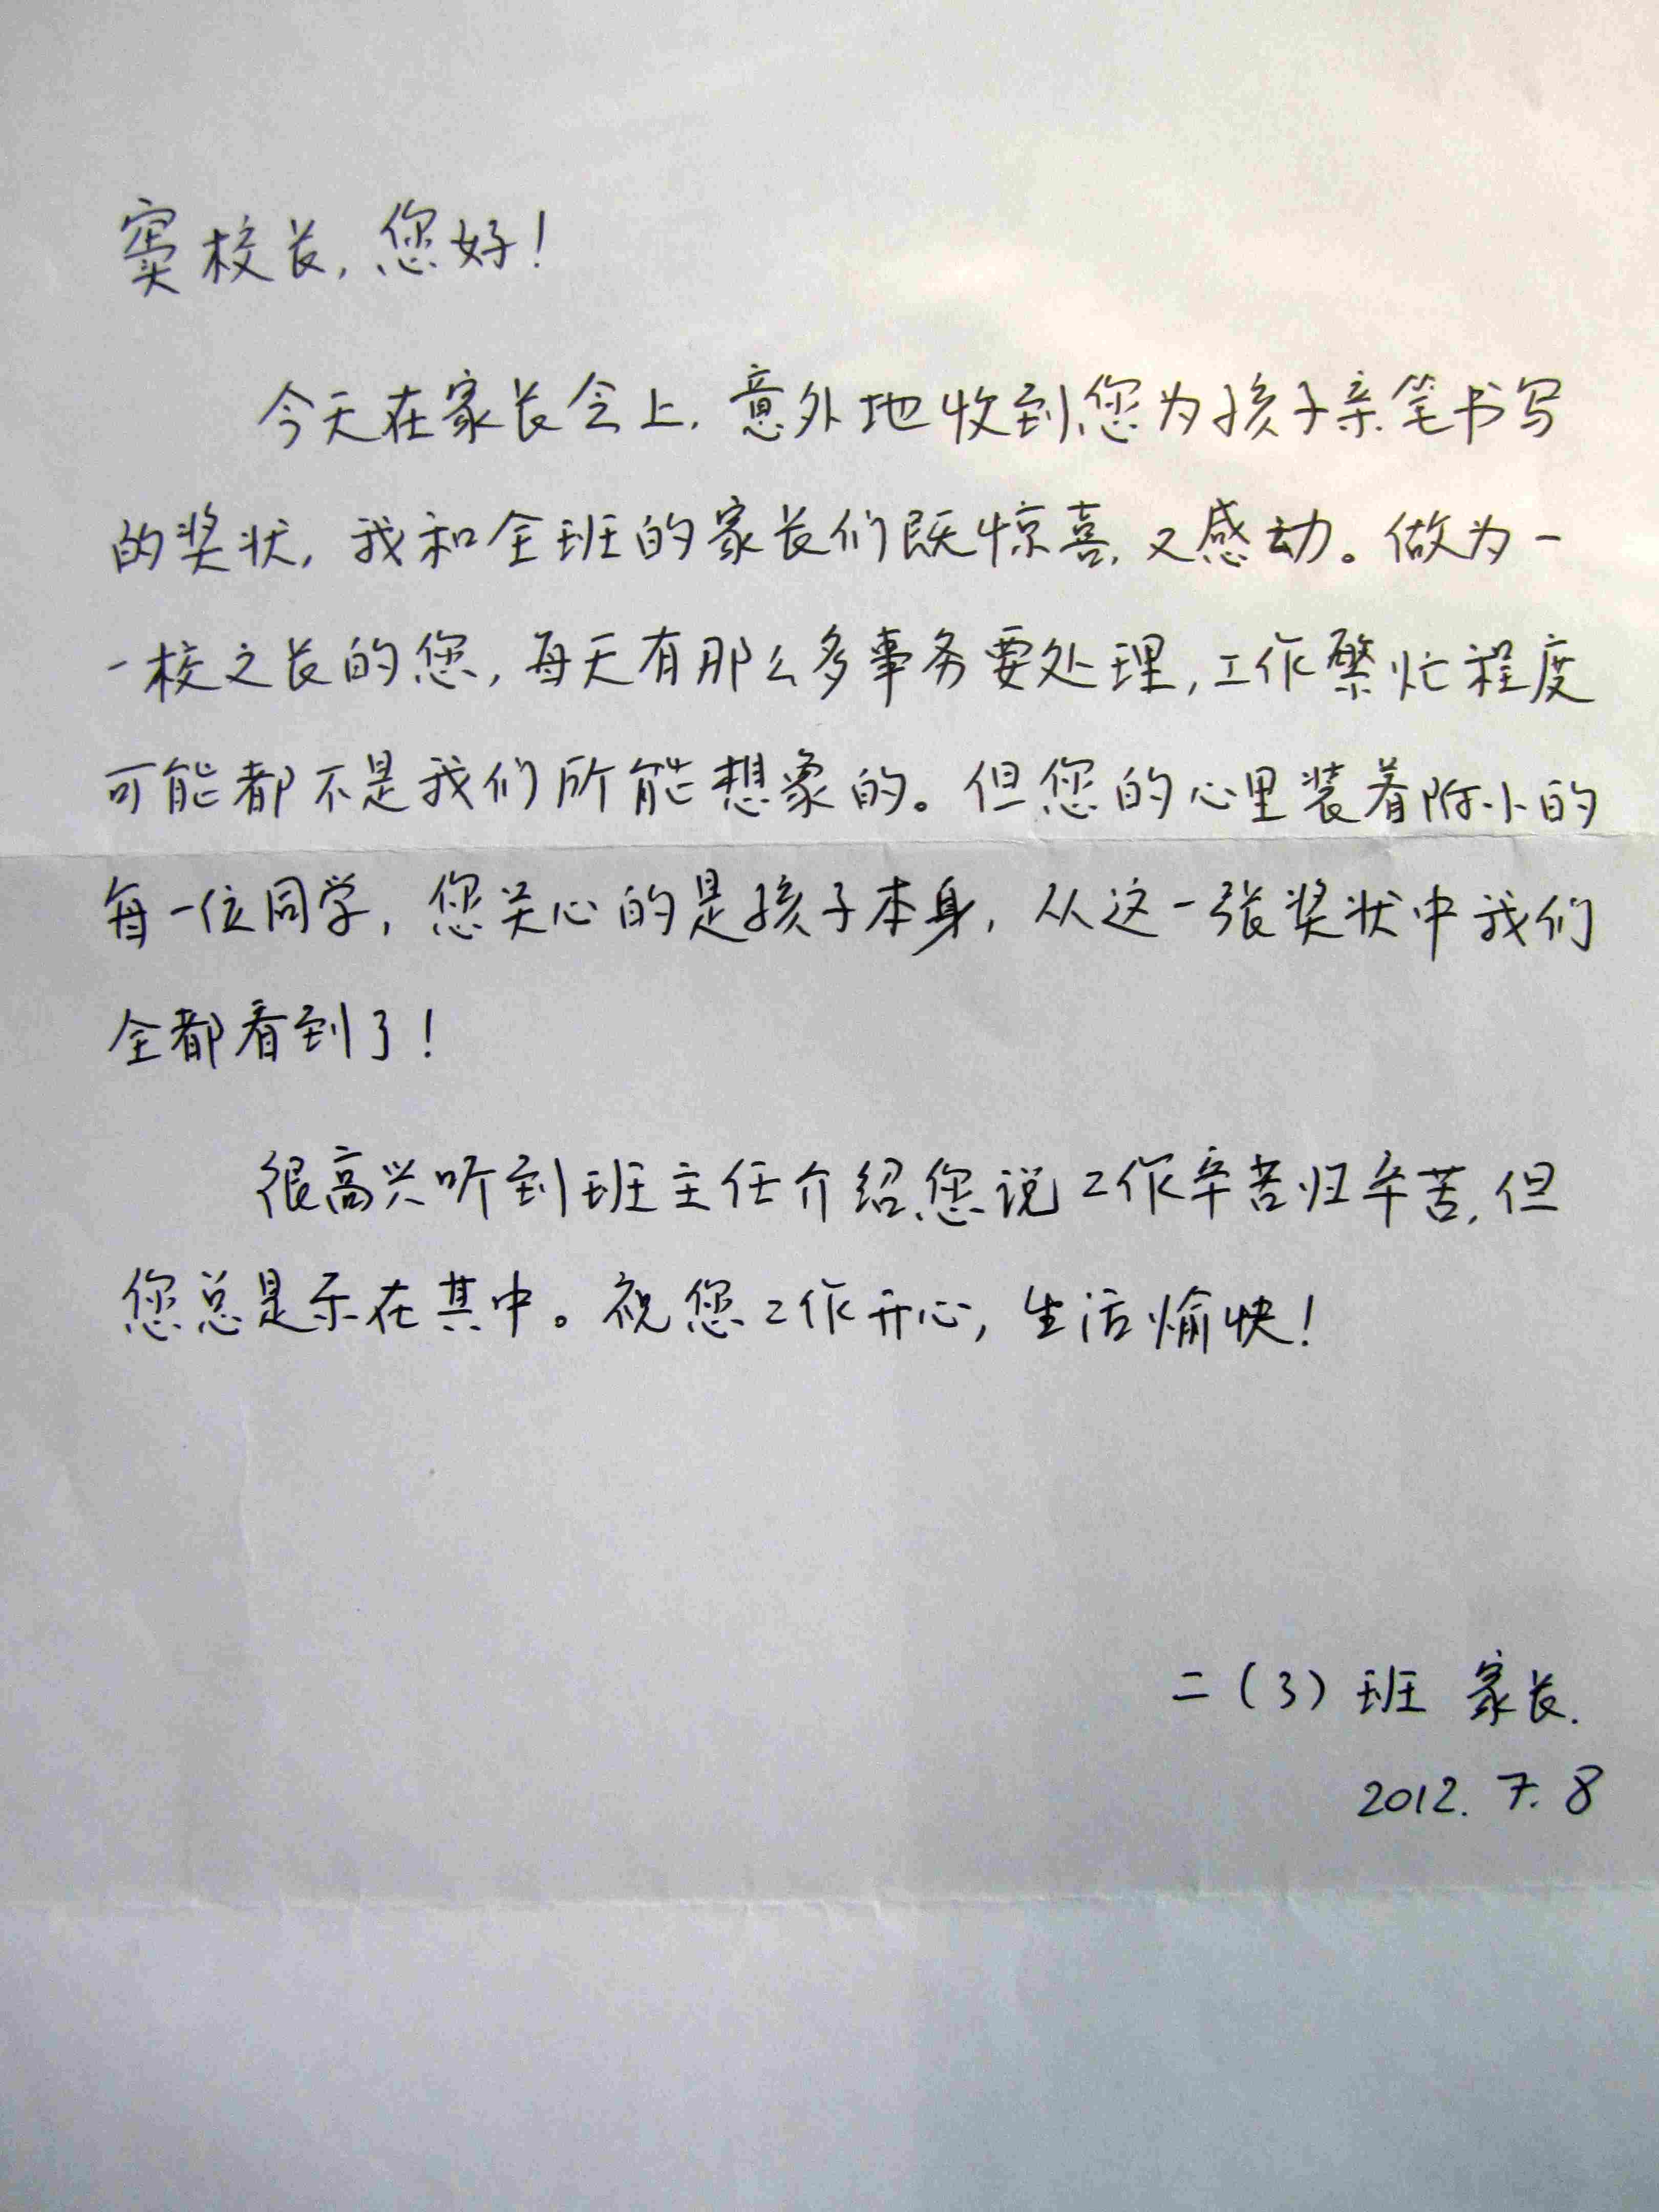 窦校长,您好!
今天在家长会上,意外地收到您为孩子亲笔书写
的奖状,我和全班的家长们既惊喜,又感动。做为一
一校之长的您,每天有那么多事务要处理,工作繁忙程度
可能都不是我们所能想象的。但您的心里装着附小的
每一位同学,您关心的是孩子本身,从这一张奖状中我们
全都看到了!
很高兴听到班主任介绍您说工作辛苦归辛苦,但
您总是乐在其中。祝您工作开心,生活愉快!
二(3)班 家长.
2012.7.8